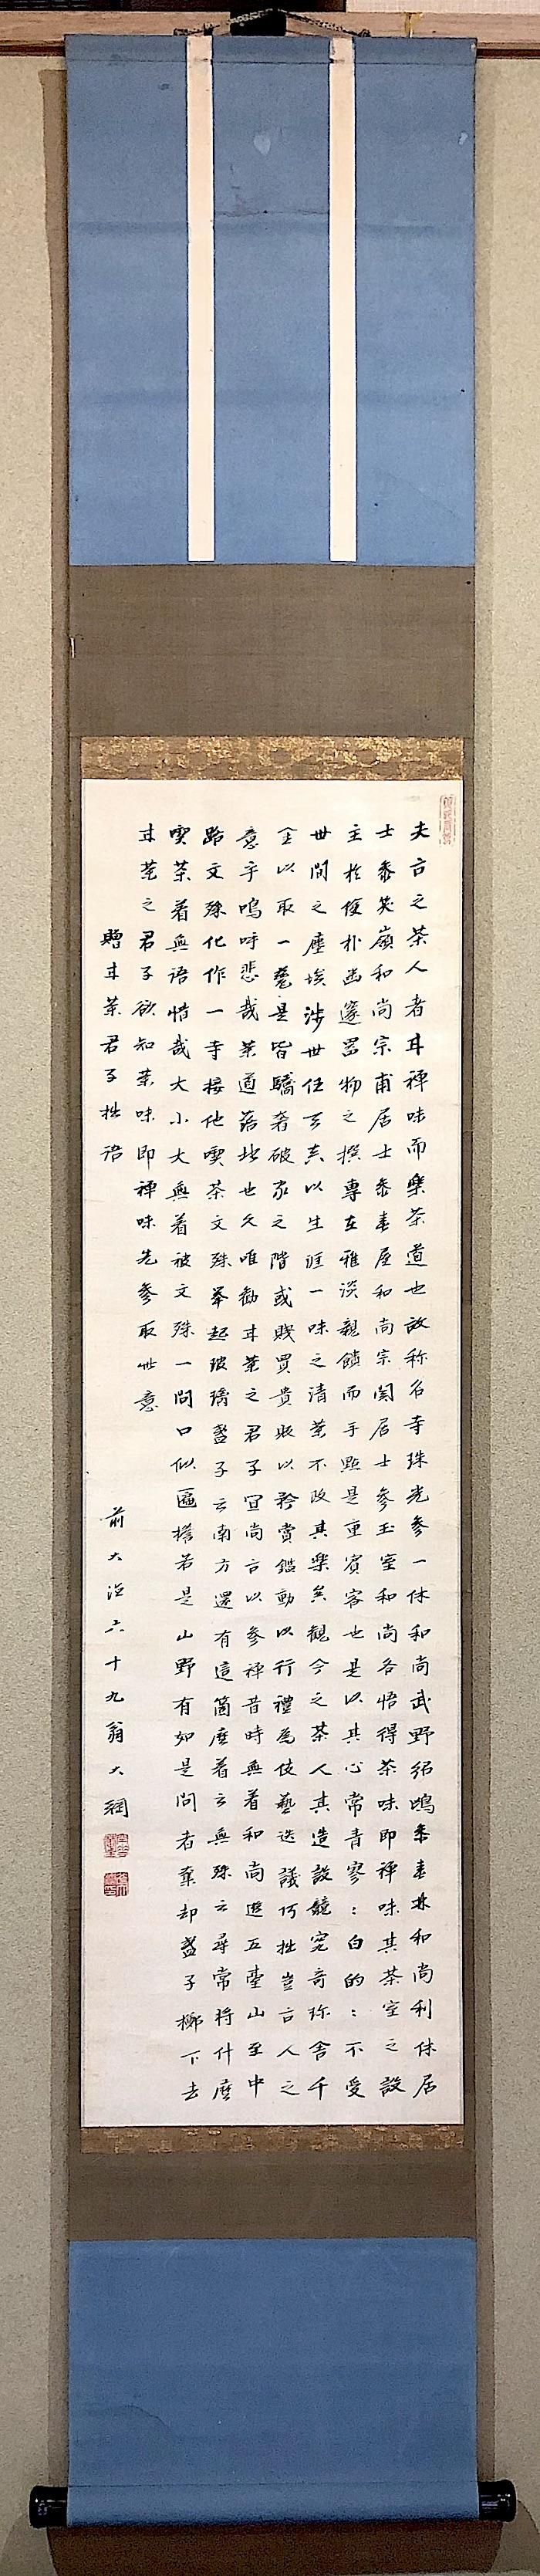 夫言之茶人者耳禅味而楽茶道也故称名寺珠光参一休和尚武野紹鴎参末和尚利休居
士参笑嶺和尚宗甫居士参春屋和尚宗関居士参玉室和尚各悟得茶味即禅味其茶室之設
主於倹朴幽邃器物之撰専在雅淡親饋而手點是重賓客也是以其心常青寥:白的:不受
世間之塵埃渉世任以生涯一味之清茶不改其楽矣観今之茶人其造設競究奇珍舎千
金以取一甕是皆驕奢破家之階或賎買貴販以矜賞鑑動以行禮為伎藝迭議巧拙豈言人之
意乎嗚呼悲哉茶道落地也久唯勧耳茶之君子宜尚言以参禅昔時無着和尚遊五臺山至中
路文殊化作一寺接他喫茶文殊挙起玻璃盞子云南方還有這箇麼着云無殊云尋常将什麼
喫茶着無語惜哉大小大無着被文殊一問口似匾擔若是山野有如是問者奪却盞子擲下去
耳茶之君子欲知茶味即禅味先参取此意
贈耳茶君子拙語
前大徳六十九翁大綱